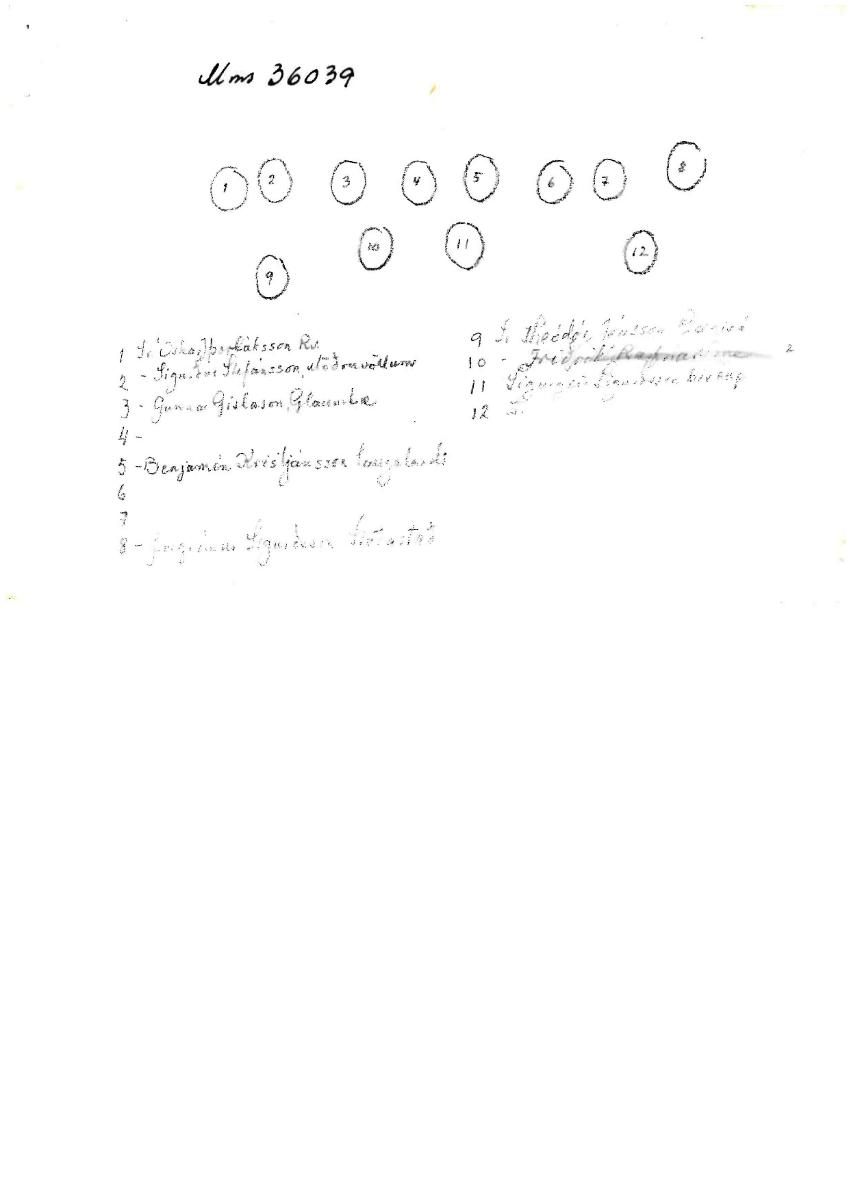 Mms 36039
1 2 3 4 5 6 7 8
10 11 12
9
1 Sr Óskar Þorláksson Rv.
2 - Sigurður Stefánsson, Möðruvöllum
3 - Gunnar Gíslason, Glaumbæ
4 -
5 - Benjamín Kristjánsson Laugalandi
6
7
8 - Sigurðsson
9 Sr Theódór Jónsson
10 - Friðrik 2
11 Sigurgeir Sigurðsson biskup
12 S.